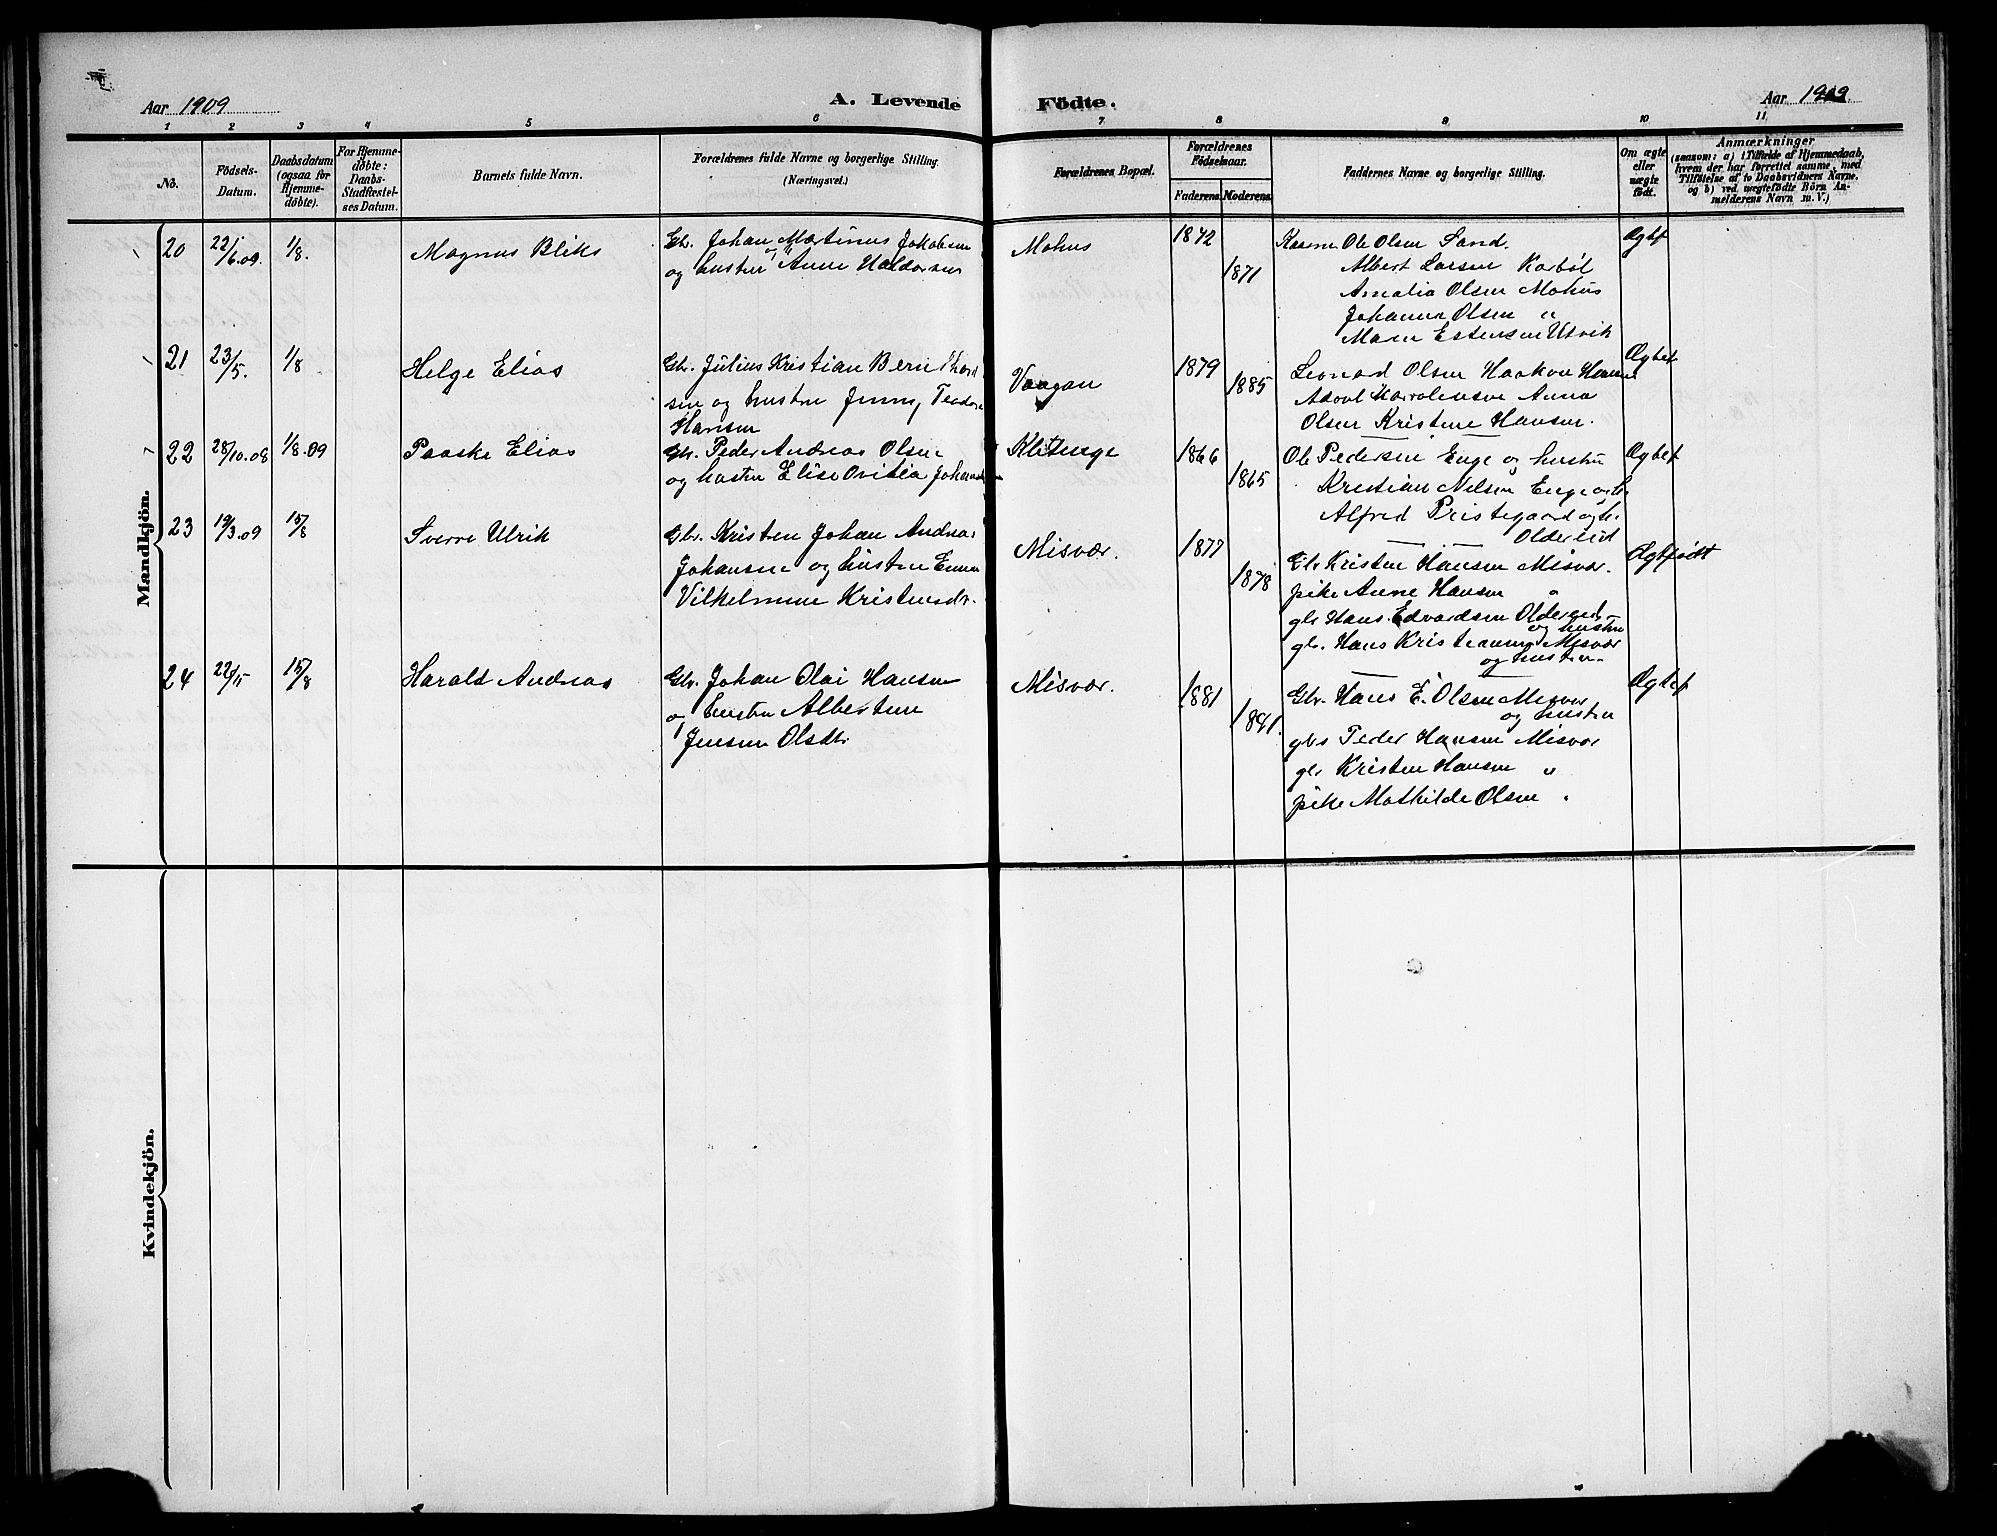 Aar 1909
A. Levende
Födte.
Aar 1909
1 2 3 4 5 6 7 8 9 10 11
No.
Födsels-
Datum.
Daabsdatum
(ogsaa for
Hjemme-
døbte).
For Hjemme-
døbte:
Daabs-
Stadfæstel-
ses Datum.
Barnets fulde Navn.
Forældrenes fulde Navne og borgerlige Stilling.
(Næringsvei.)
Forældrenes Bopæl.
Forældrenes
Födselsaar.
Faderens. Moderens.
Faddernes Navne og borgerlige Stilling.
Om ægte
eller
uægte
födt.
Anmærkninger
(saasom: a) i Tilfælde af Hjemmedaab,
hvem der har forrettet samme, med
Tilföielse af to Daabsvidners Navne,
og b) ved uægtefödte Börn An-
melderens Navn m. V.)
Mandkjön.
20
22/6.09.
1/8.
Magnus Bliks
Gbr. Johan Martinus Jakobsen
og hustru Anne Haldorsen
Mohus
1842
1871
Ole Olsen Sand.
Albert Larsen Karbøl
Amalia Olsen Mohus
Johanna Olsen "
Maren Estensen Utvik
Ægtef
21
23/5.
1/8
Helge Elias
Gbr. Julius Kristian Bernthard
sen og hustru Jenny Teodora
Hansen
Vaagan
1879
1885
Leonard Olsen Haakon Hansen
Anna
Olsen Kristine Hansen.
Ægtef
22
28/10.08
1/8.09
Paaske Elias
Gbr. Peder Andreas Olsen
og hustru Elise Ovidia
Klitenge
1866
1865
Ole Pedersen Enge og hustru
Kristian Nilsen Enge og h.
Alfred Prestegaard og h.
Oldereid
Ægtef
23
19/3.09
15/8
Sverre Ulrik
Gbr. Kristen Johan Andreas
Johansen og hustru Emma
Vilhelmine Kristensdr.
Misvær.
1877
1878
Gbr Kristen Hansen Misvær.
pike Anne Hansen "
gbr Hans Edvardsen Oldereid
og hustru
gbr. Hans Kristiansen Misvær
og hustru
Ægtefødt
24
15/8
Harald Andreas
Gbr. Johan Olai Hansen
og hustru Albertine
Jensine Olsdtr
Misvær.
1881
1881.
Gbr. Hans E. Olsen Misvær
og hustru
gbr Peder Hansen Misvær
gbr Kristen Hansen "
pike Mathilde Olsen "
Ægtef
Kvindekjön.